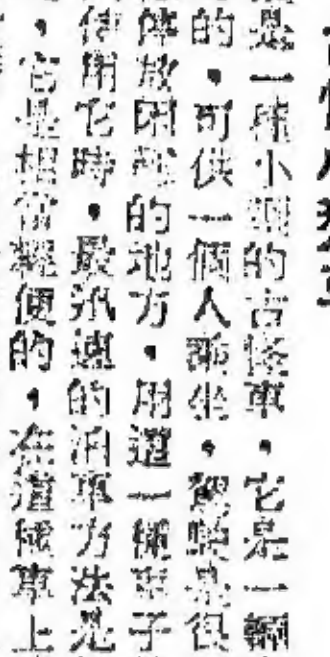 是一種小型的古怪車，它是一輛
的，可供一個人乘坐，駕駛是很
停放困難的地方，用這一種車子
使用它時，最迅速的泊車方法是
，它是相當輕便的，在這種車上